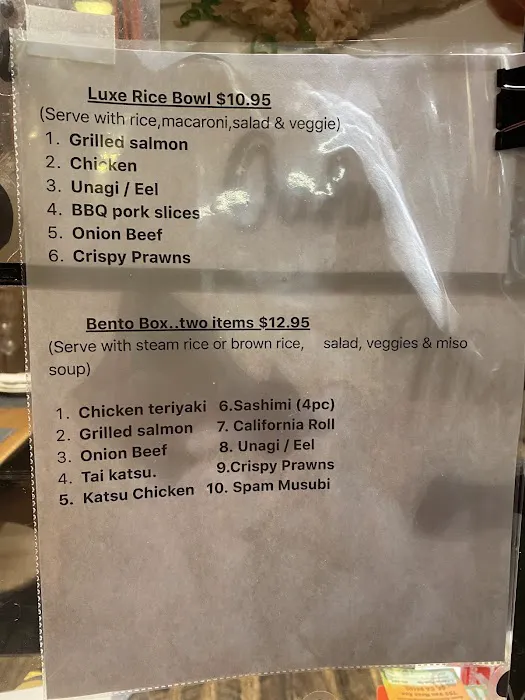 Luxe Rice Bowl $10.95
(Serve with rice,macaroni,salad & veggie)
1. Grilled salmon
2. Chicken
3. Unagi / Eel
4. BBQ pork slices
5. Onion Beef
6. Crispy Prawns
Bento Box..two items $12.95
(Serve with steam rice or brown rice, salad, veggies & miso
soup)
1. Chicken teriyaki 6.Sashimi (4pc)
2. Grilled salmon 7. California Roll
3. Onion Beef 8. Unagi / Eel
4. Tai katsu. 9.Crispy Prawns
5. Katsu Chicken 10. Spam Musubi